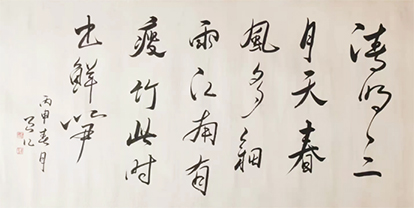 清明二
月天春
風多細
雨江南有
瘦竹此时
出鮮笋
丙申春月